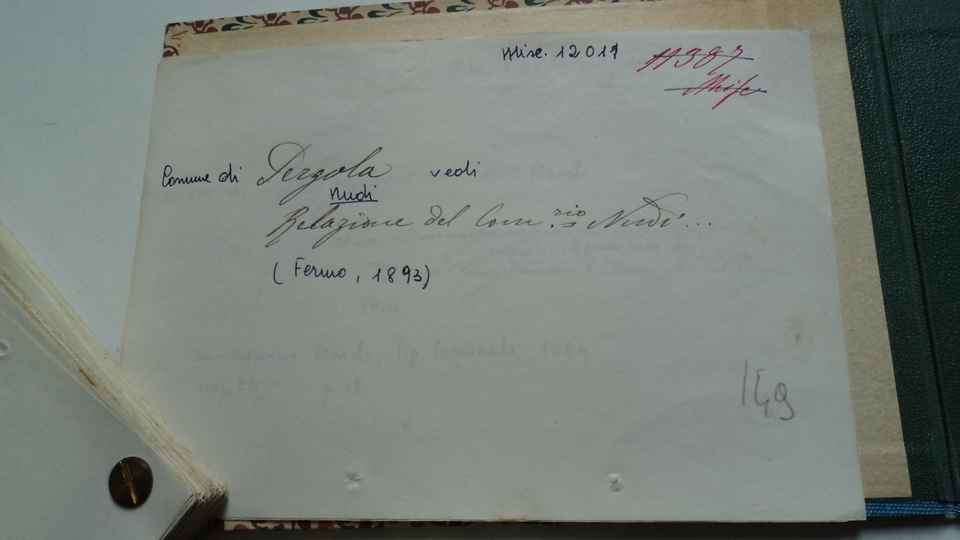 Misc. 12019
11387
Misc
Comune di Pergola vedi
Nudi
Relazione del Com.rio Nudi...
(Fermo, 1893)
149